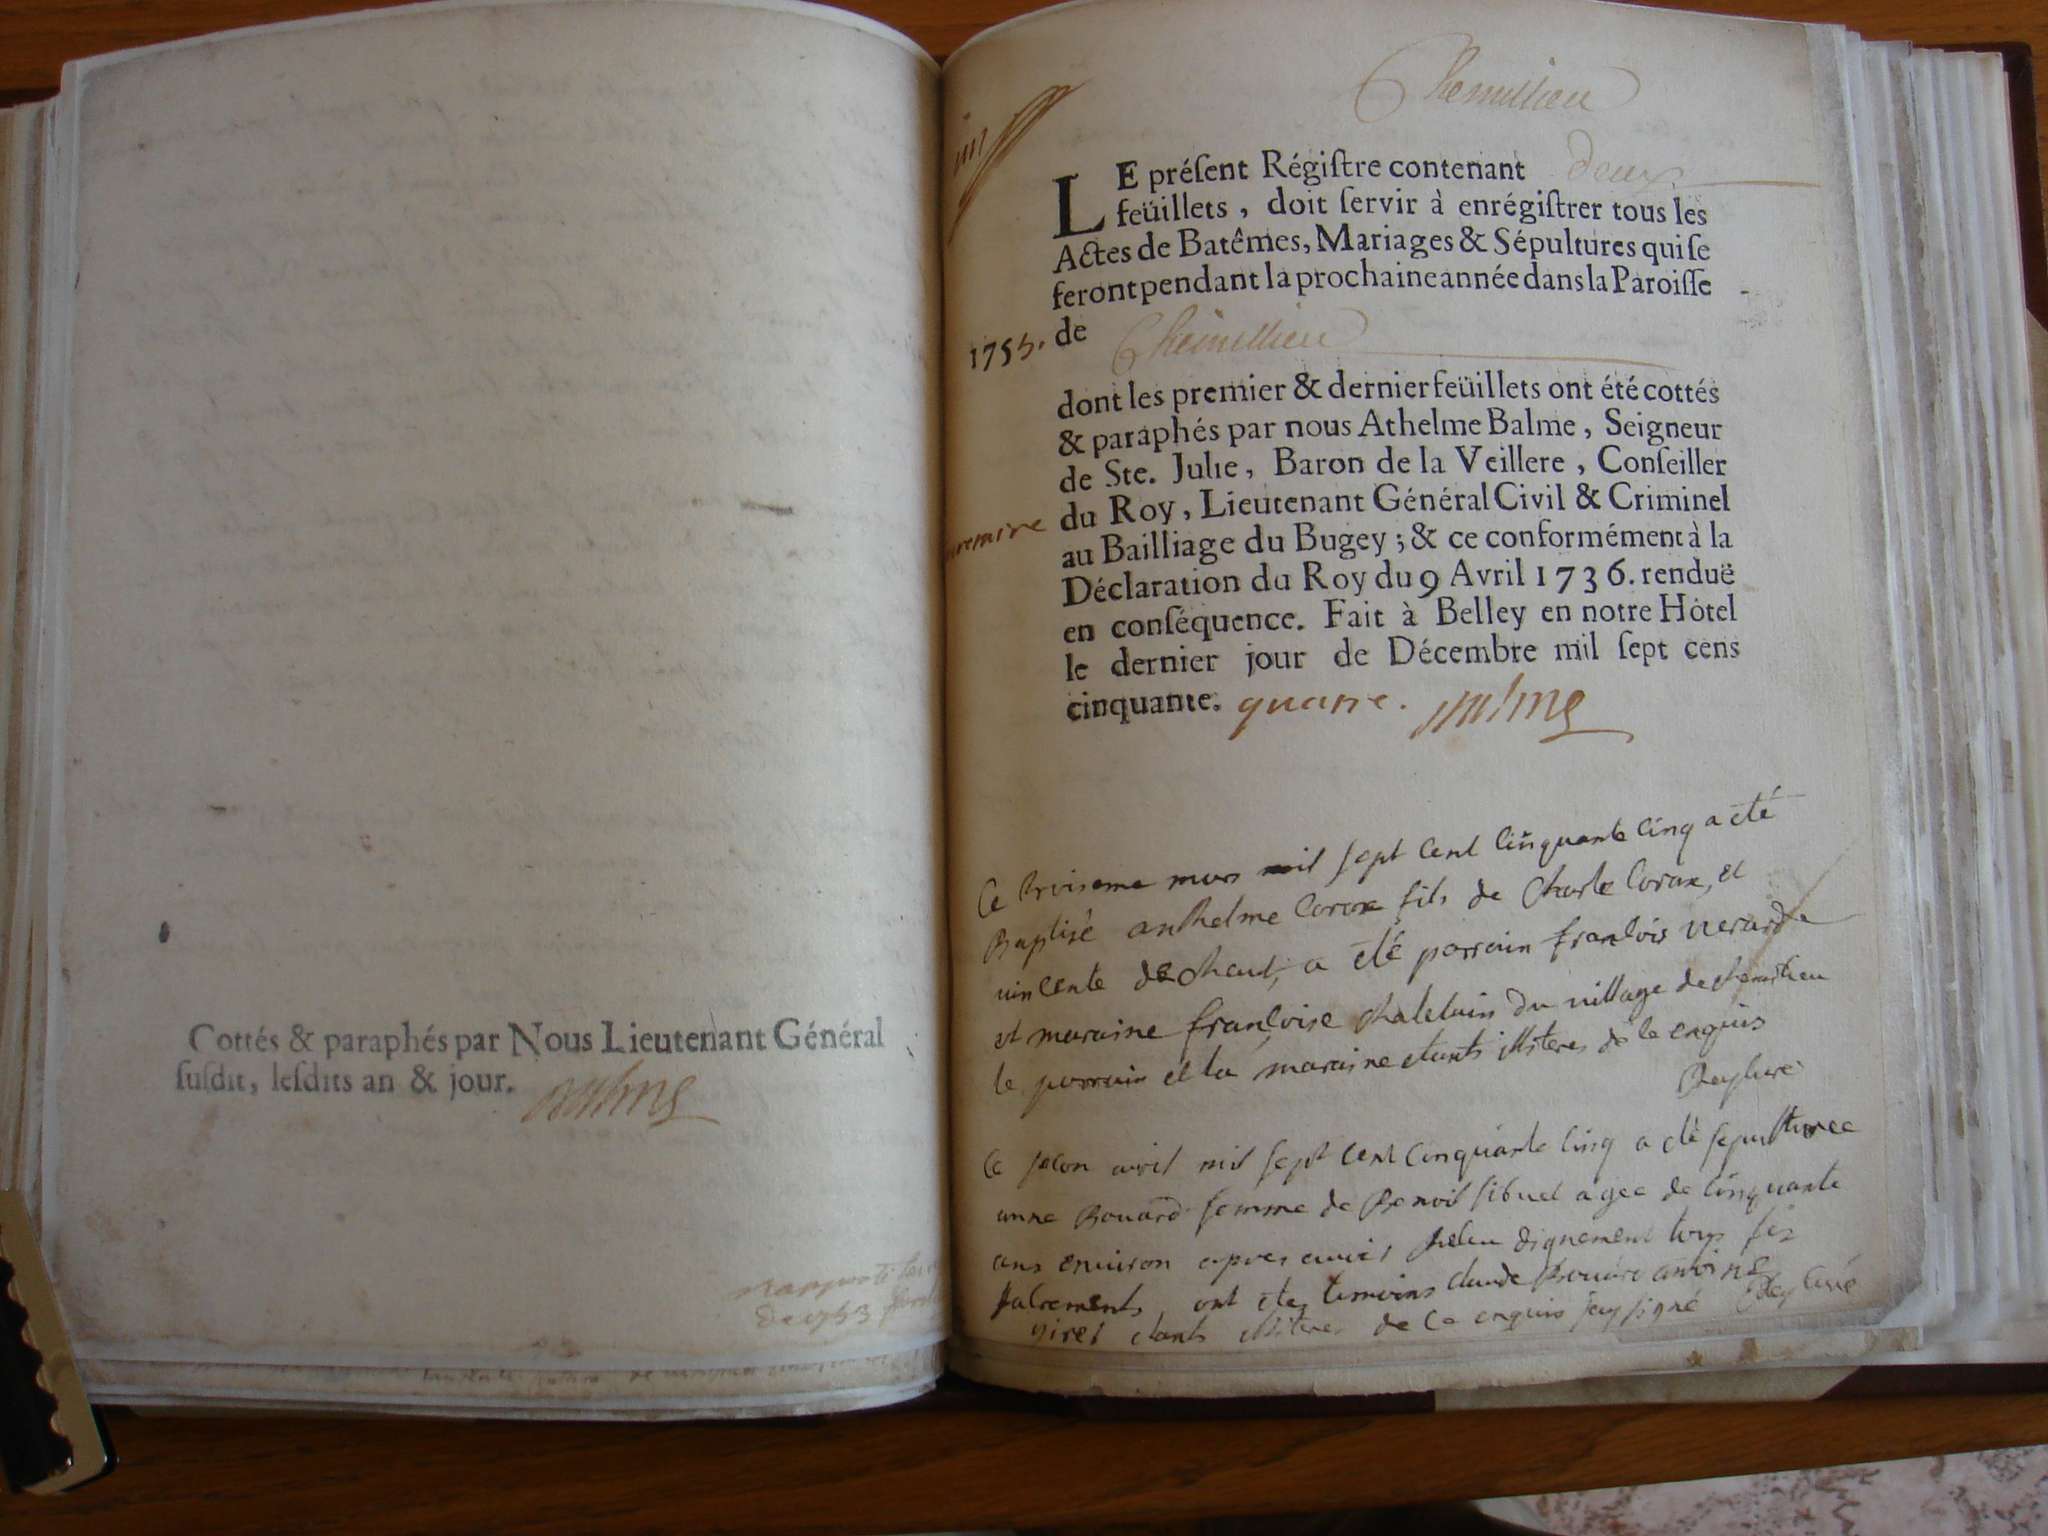 Cottés & paraphés par Nous Lieutenant Général
suſdit, leſdits an & jour. Balme
de 1753
Chemillieu
LE préſent Régiſtre contenant deux
feüillets, doit ſervir à enrégiſtrer tous les
Actes de Batêmes, Mariages & Sépultures qui ſe
feront pendant la prochaine année dans la Paroiſſe
1755. de Chemillieu
dont les premier & dernier feüillets ont été cottés
& paraphés par nous Athelme Balme, Seigneur
de Ste. Julie, Baron de la Veillere, Conſeiller
du Roy, Lieutenant Général Civil & Criminel
au Bailliage du Bugey; & ce conformément à la
Déclaration du Roy du 9 Avril 1736. renduë
en conſéquence. Fait à Belley en notre Hôtel
le dernier jour de Décembre mil ſept cens
cinquante. quatre. Balme
Ce troiseme mars mil sept cent cinquante cinq a eté
Baptisé anthelme fils de Charle et
vincente dechaud, a eté parrain francois
et maraine francoise chatelain du village de chemilieu
le parrain et la maraine etants illiteres de ce enquis
Rey curé
Ce secon avril mil sept cent cinquante cinq a eté sepulturee
anne Bouard femme de Benoit sibuet agee de cinquante
ans environ apres avoir dignement tous ses
sacrements, ont etez temoins claude Bouard antoine
etants illiteres de ce enquis jay signé Rey curé